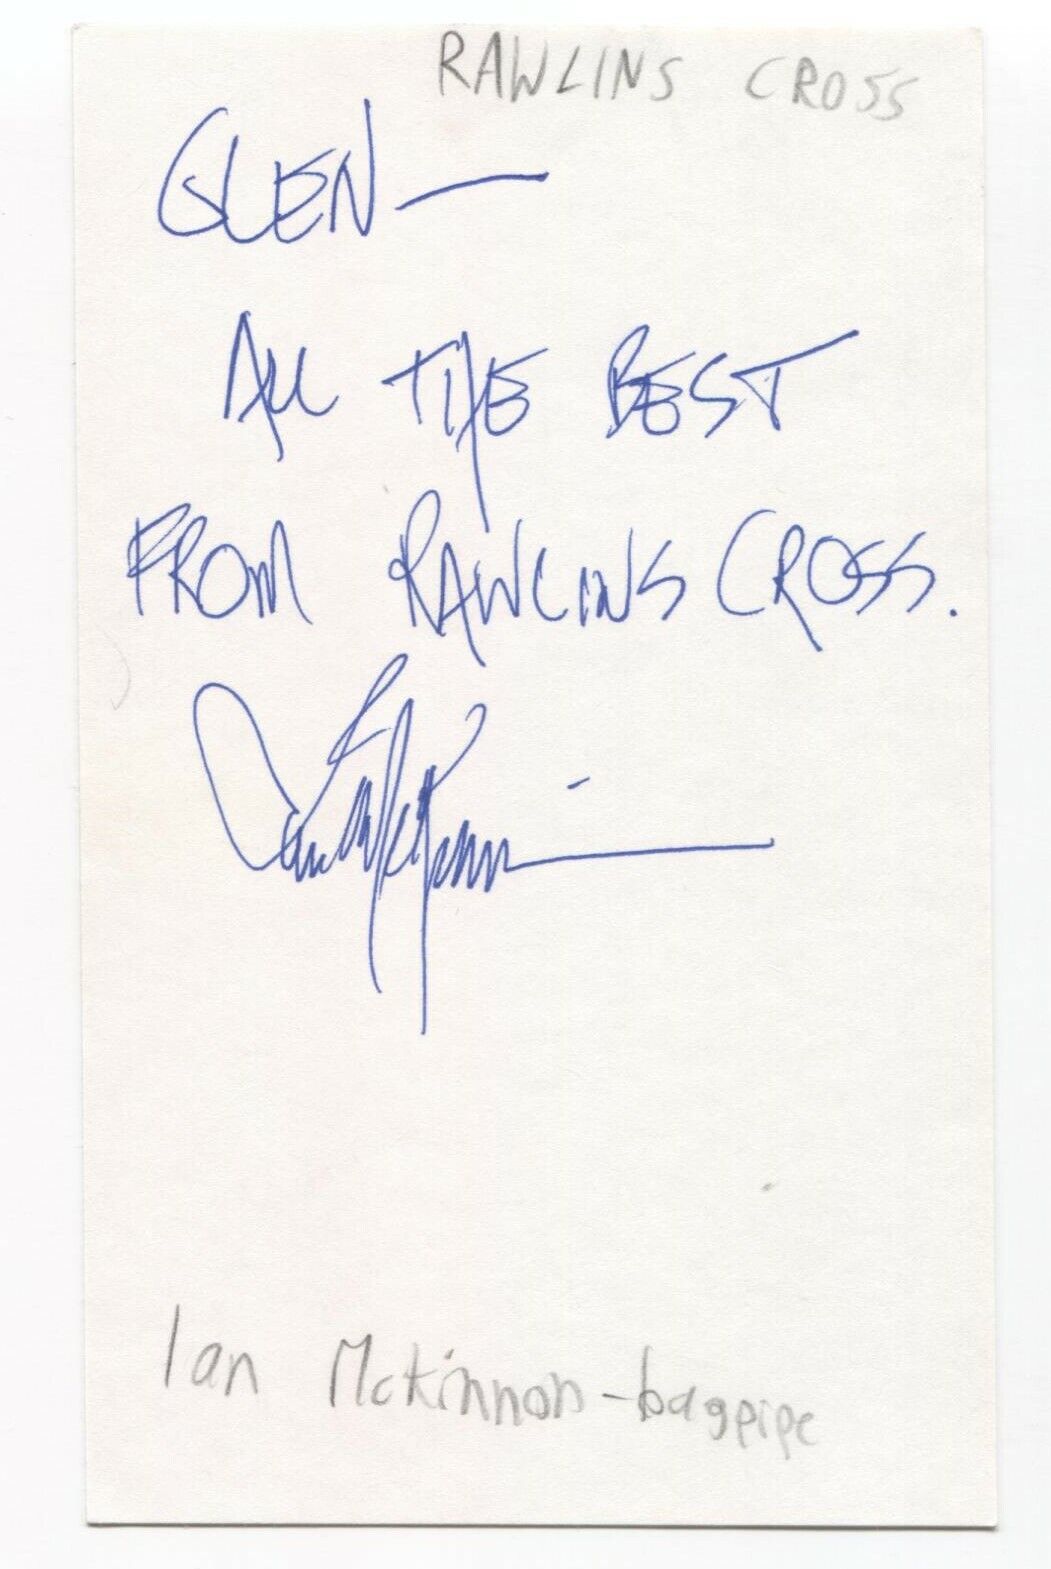 RAWLINS CROSS
GLEN —
ALL THE BEST
FROM RAWLINS CROSS.
Ian McKinnon - bagpipe